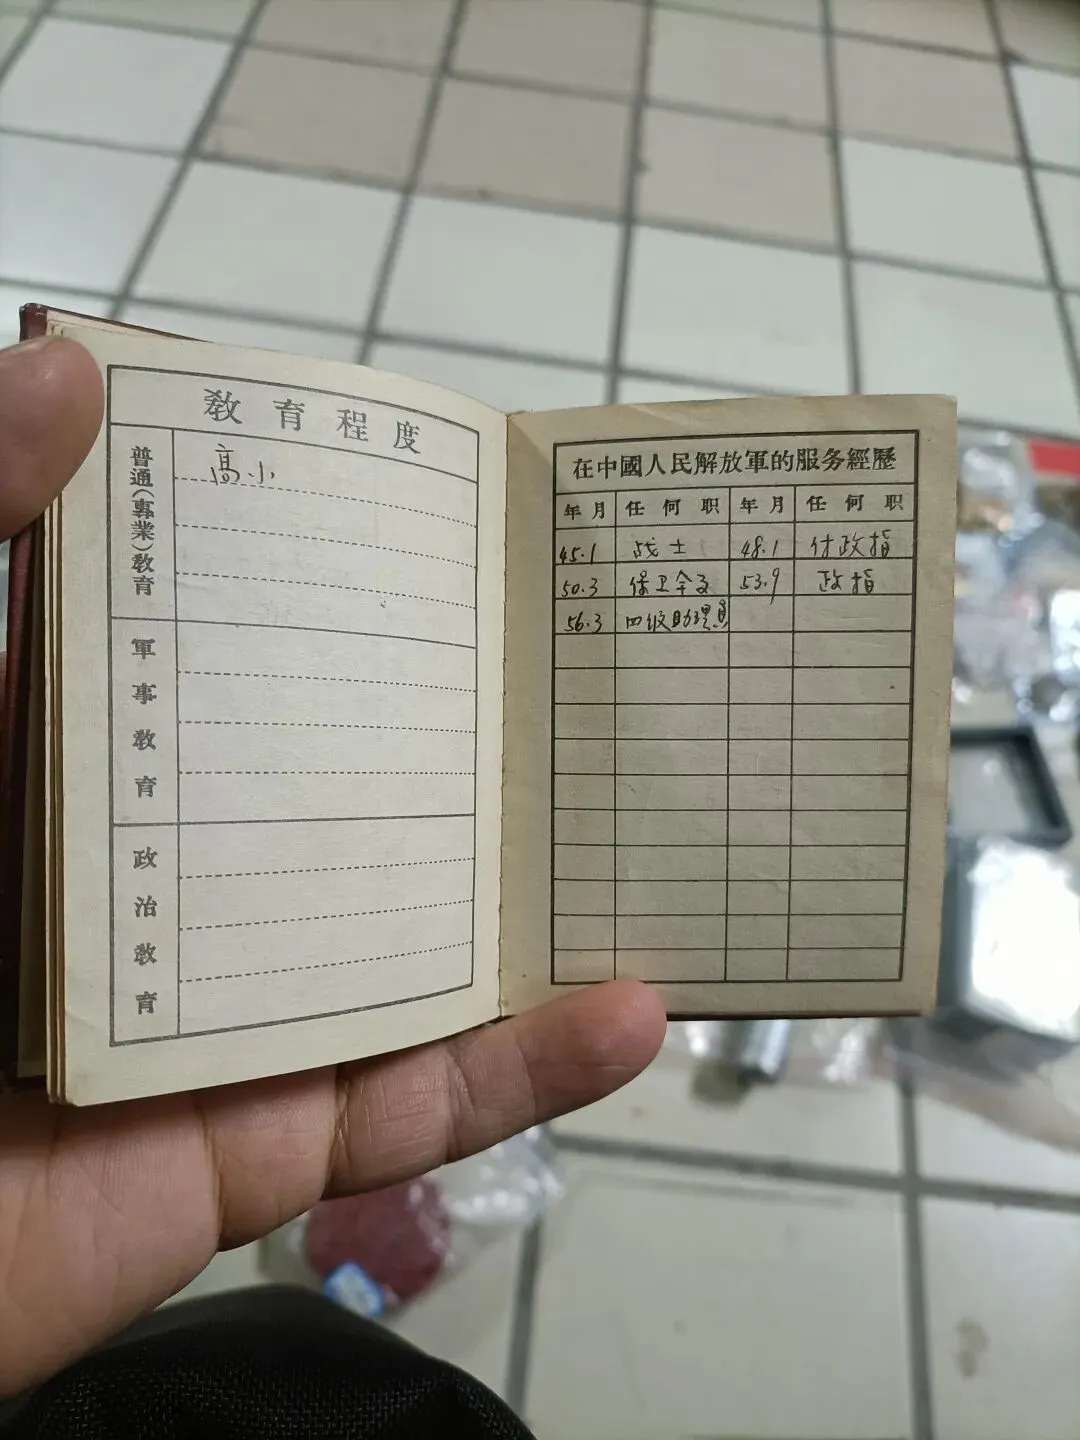 教育程度
普通(專業)教育
高小
軍事教育
政治教育
在中國人民解放軍的服务經歷
年月 任何职 年月 任何职
45.1 战士 48.1 付政指
50.3 保卫干事 53.9 政指
56.3 四级助理員